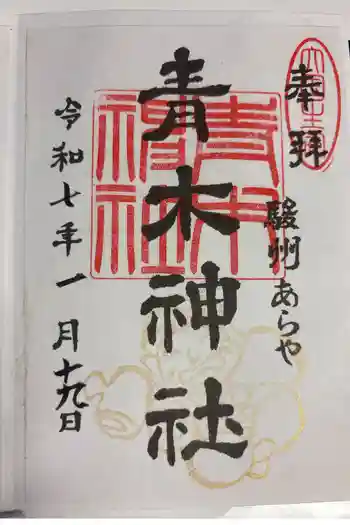 奉拝
駿州あらや
青木神社
青木神社
令和七年一月十九日